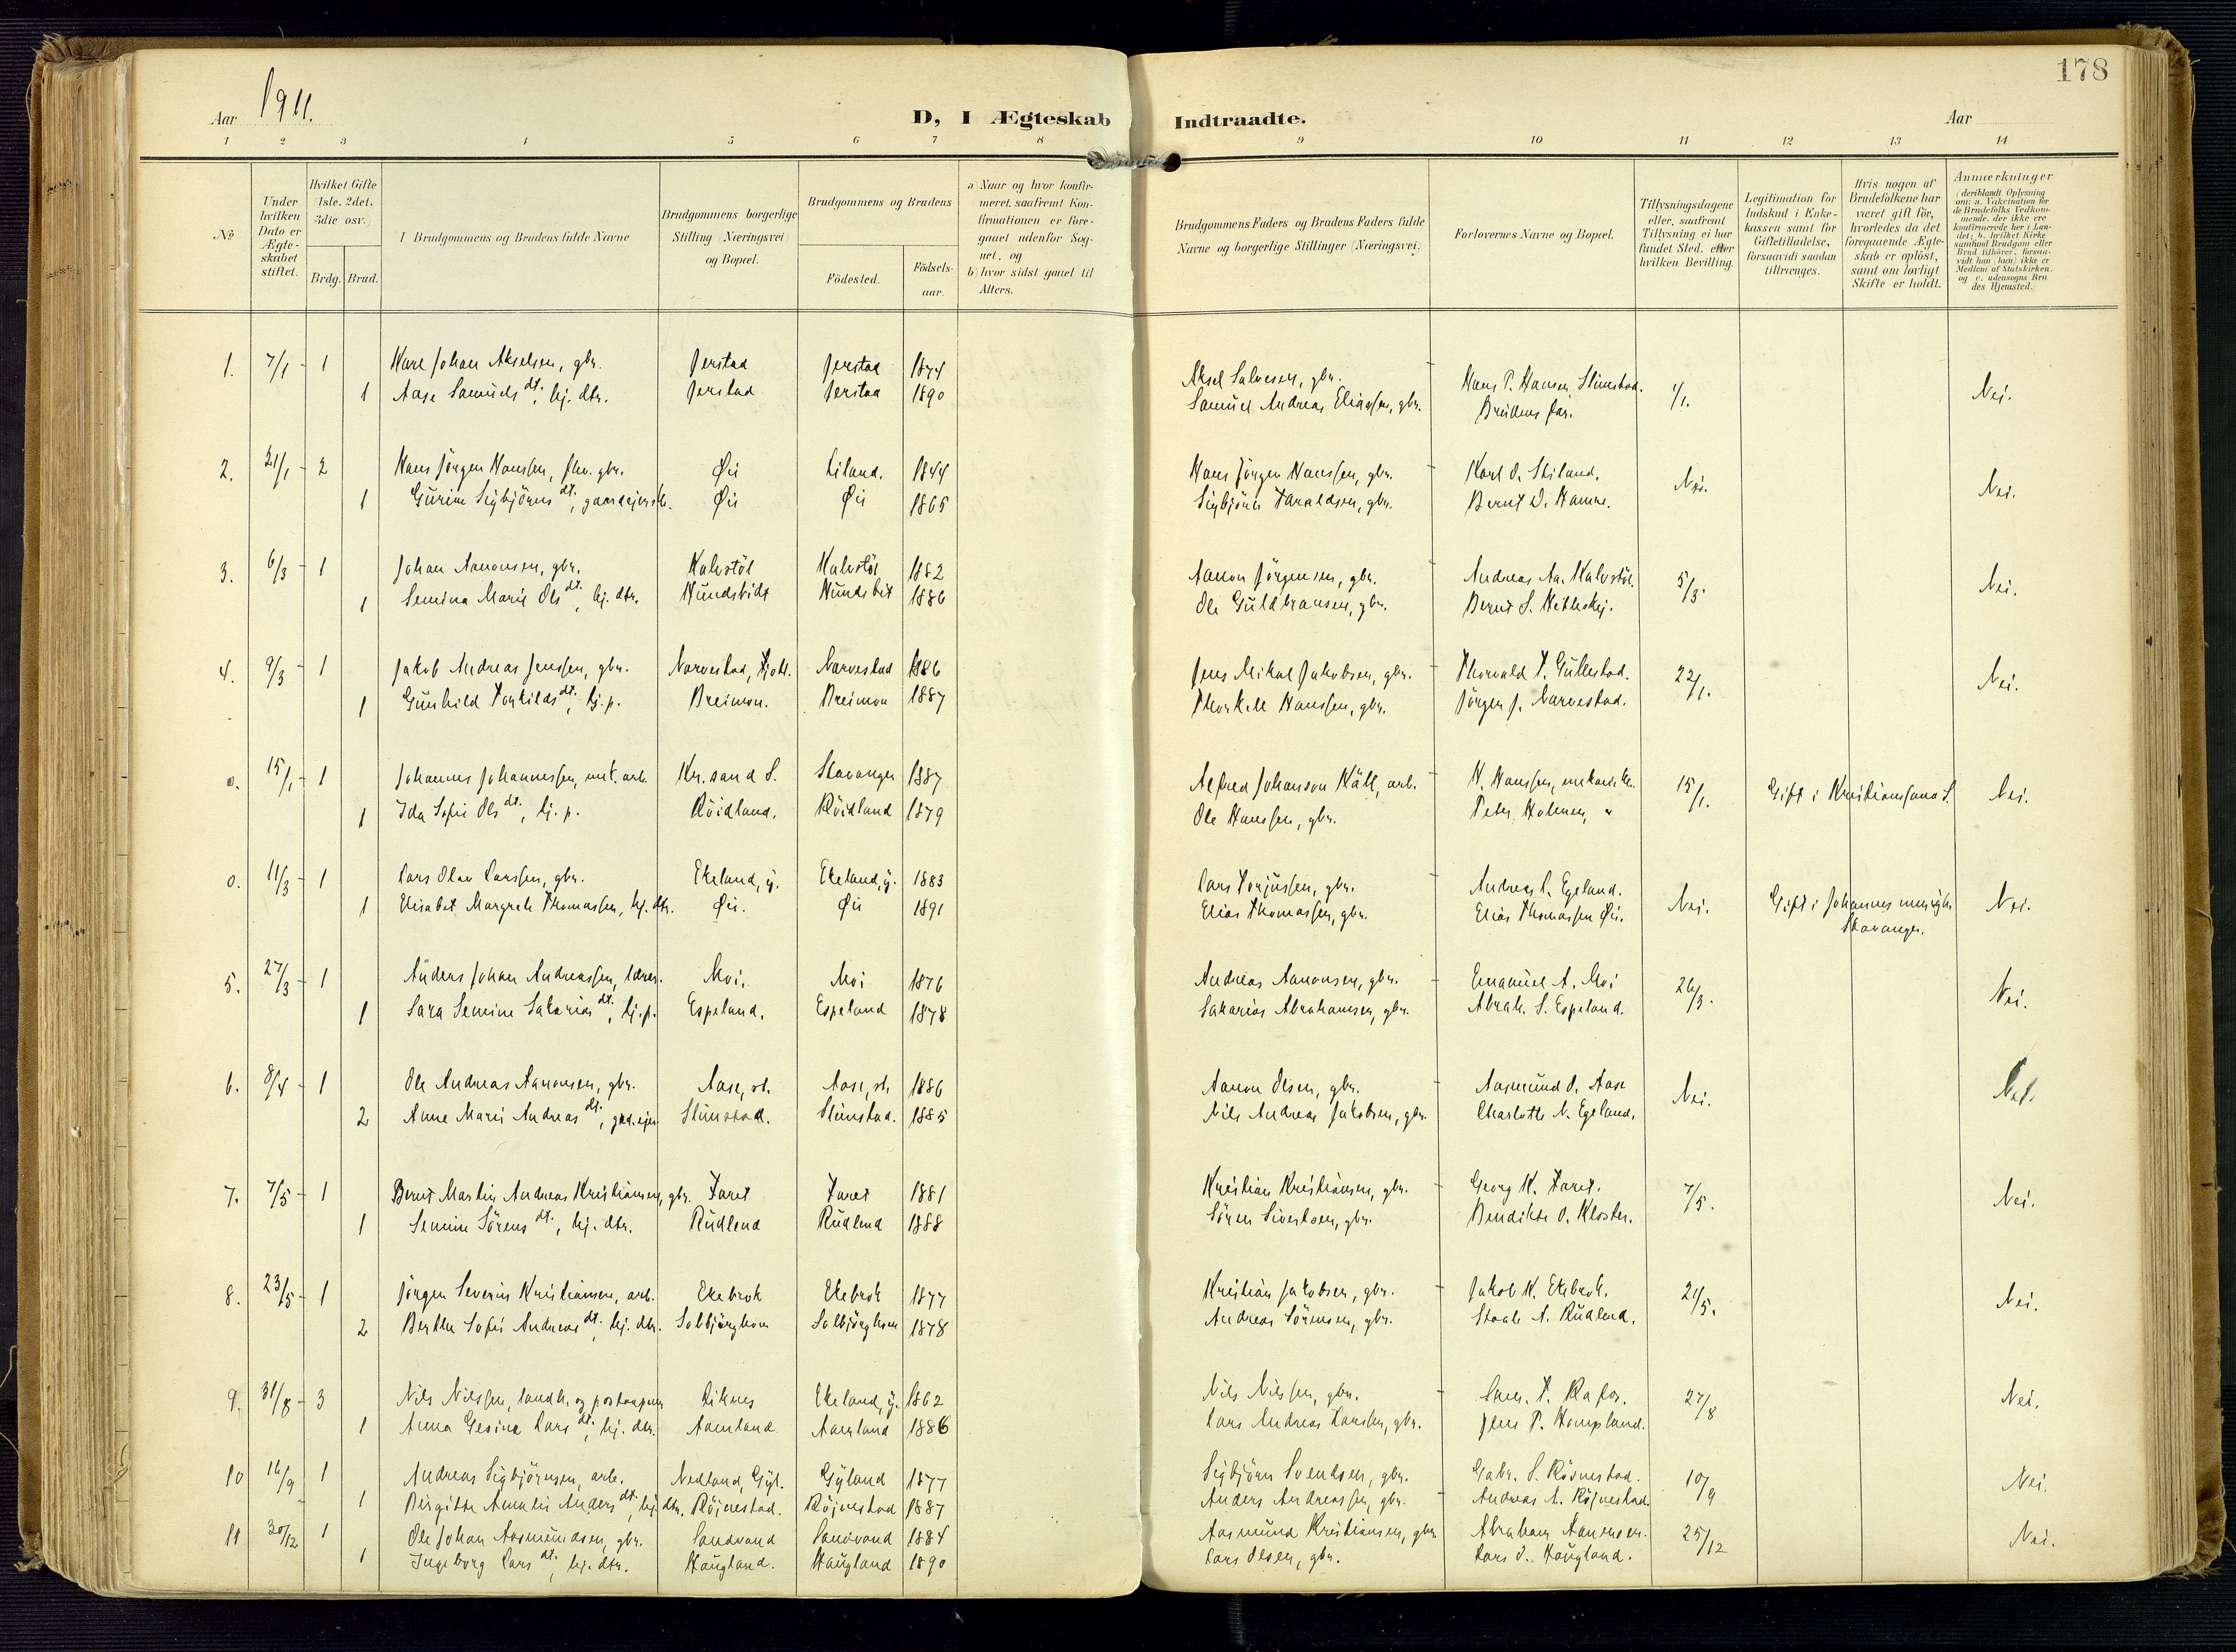 178
Aar 1911.
D, I Ægteskab Indtraadte.
Aar
1 2 3 4 5 6 7 8 9 10 11 12 13 14
No
Under hvilken Dato er Ægteskabet stiftet.
Hvilket Gifte (1ste, 2det, 3die osv.)
Brdg. Brud.
I Brudgommens og Brudens fulde Navne
Brudgommens borgerlige Stilling (Næringsvei) og Bopæl.
Brudgommens og Brudens
Födested.
Födselsaar.
a) Naar og hvor konfirmeret, saafremt Konfirmationen er foregaaet udenfor Sognet, og
b) hvor sidst gaaet til Alters.
Brudgommens Faders og Brudens Faders fulde Navne og borgerlige Stillinger (Næringsvei)
Forlovernes Navne og Bopæl.
Tillysningsdagene eller, saafremt Tillysning ei har fundet Sted, efter hvilken Bevilling.
Legitimation for Indskud i Enkekassen samt for Giftetilladelse, forsaavidt saadan tiltrænges.
Hvis nogen af Brudefolkene har været gift før, hvorledes da det foregaaende Ægteskab er oplöst, samt om lovligt Skifte er holdt.
Anmærkninger (deriblandt Oplysning om: a. Vakcination for de Brudefolks Vedkommende, der ikke ere konfirmerede her i Landet; b. hvilket Kirkesamfund Brudgom eller Brud tilhörer, forsaavidt han (hun) ikke er Medlem af Statskirken, og c. udensogns Brudes Hjemsted.)
1. 7/1 - 1 Karl Johan Akselsen, gbr. Jerstad Jerstad 1874 Aksel Salvesen, gbr. - Hans P. Hansen Slimestad. 1/1. Nei.
1 Aase Samuelsdt., hj. dtr. Jerstad Jerstad 1890 Samuel Andreas Eliassen, gbr. Brudens far.
2. 21/1 - 2 Hans Jörgen Hanssen, fhv. gbr. Øie Liland. 1844 Hans Jörgen Hanssen, gbr. - Karl O. Stiland. Nei. Nei.
1 Gurine Sigbjörnsdt., gaardejersk. Øie Øie 1865 Sigbjörn Haraldsen, gbr. Bernt D. Hamre.
3. 6/3 - 1 Johan Aanonsen, gbr. Kalvstöl Kalvstöl 1882 Aanon Jörgensen, gbr. - Andreas Aa. Kalvstöl. 5/3. Nei.
1 Semina Marie Olsdt., hj. dtr. Hundsbidt Hundsbit 1886 Ole Guldbransen, gbr. Bernt S.
4. 9/3 - 1 Jakob Andreas Jenssen, gbr. Narvestad, Narvestad 1886 Jens Mikal Jakobsen, gbr. - Thorvald T. Gullestad. 22/1. Nei.
1 Gunhild Torkildsdt., hj. p. Breimon. Breimon 1887 Thorkell Hanssen, gbr. Jörgen J. Narvestad.
o. 15/1 - 1 Johannes Johannessen, mek. arb. Kr.sand S. Stavanger 1887 Alfred Johanson Käll, arb. - H. Hanssen, mekanik. 15/1. Gift i Kristianssand S. Nei.
1 Ida Sofie Olsdt., hj. p. Röidland. Röidland 1879 Ole Hanssen, gbr. Peter Holmen, "
o. 11/3 - 1 Lars Olav Larssen, gbr. Ekeland, y. Ekeland, y. 1883 Lars Torjussen, gbr. Andreas L. Egeland. Nei. Gift i Johannes menigh. Stavanger. Nei.
1 Elisabet Margrete Thomassen, hj. dtr. Øie. Øie 1891 Elias Thomassen, gbr. Elias Thomassen Øie.
5. 27/3 - 1 Anders Johan Andreassen, lærer. Moi. Moi 1876 Andreas Aanonsen, gbr. - Emanuel A. Moi 26/3. Nei.
1 Sara Semine Sakariasdt., hj. p. Espeland. Espeland 1878 Sakarias Abrahamsen, gbr. Abrah. S. Espeland.
6. 8/4 - 1 Ole Andreas Aanonsen, gbr. Aase, st. Aase, st. 1886 Aanon Olsen, gbr. - Aasmund O. Aase Nei. Nei.
2 Anne Marie Andreasdt., grd.ejer Slimestad. Slimestad. 1885 Nils Andreas Jakobsen, gbr. Charlotte N. Egeland.
7. 7/5 - 1 Bernt Martin Andreas Kristiansen, gbr. Faret Faret 1881 Kristian Kristiansen, gbr. - Georg K. Faret. 7/5. Nei.
1 Semine Sörensdt., hj. dtr. Rudlend Rudlend 1888 Sören Sivertsen, gbr. Bendikte O. Kloster.
8. 23/5 - 1 Jörgen Severin Kristiansen, arb. Ekebrok Ekebrok 1877 Kristian Jakobsen, gbr. - Jakob K. Ekebrok. 21/5. Nei.
2 Berthe Sofie Andreasdt., hj. dtr. Solbjörghom Solbjörghom 1878 Andreas Sörensen, gbr. Staale A. Rudlend.
9. 31/8 - 3 Nils Nilssen, landh. og postaapner Liknes Ekeland, y. 1862 Nils Nilssen, gbr. - Sam. T. Rafos. 27/8 Nei.
1 Anna Gesine Larsdt., hj. dtr. Aamland Aamland 1886 Lars Andreas Larssen, gbr. Jens P. Kvinpland.
10 16/9 - 1 Andreas Sigbjörnsen, arb. Nedland, Gyl. Gyland 1877 Sigbjörn Svendsen, gbr. Gabr. S. Röjnestad. 10/9 Nei.
1 Birgitte Amalie Andersdt., hj. dtr. Röjnestad. Röjnestad 1887 Anders Andreassen, gbr. Andreas A. Röjnestad.
11 30/12 1 Ole Johan Aasmundsen, gbr. Sandvand Sandvand 1884 Aasmund Kristiansen, gbr. Abraham Aanensen. 25/12 Nei.
1 Ingeborg Larsdt., hj. dtr. Haugland. Haugland 1890 Lars Olsen, gbr. Lars O. Haugland.